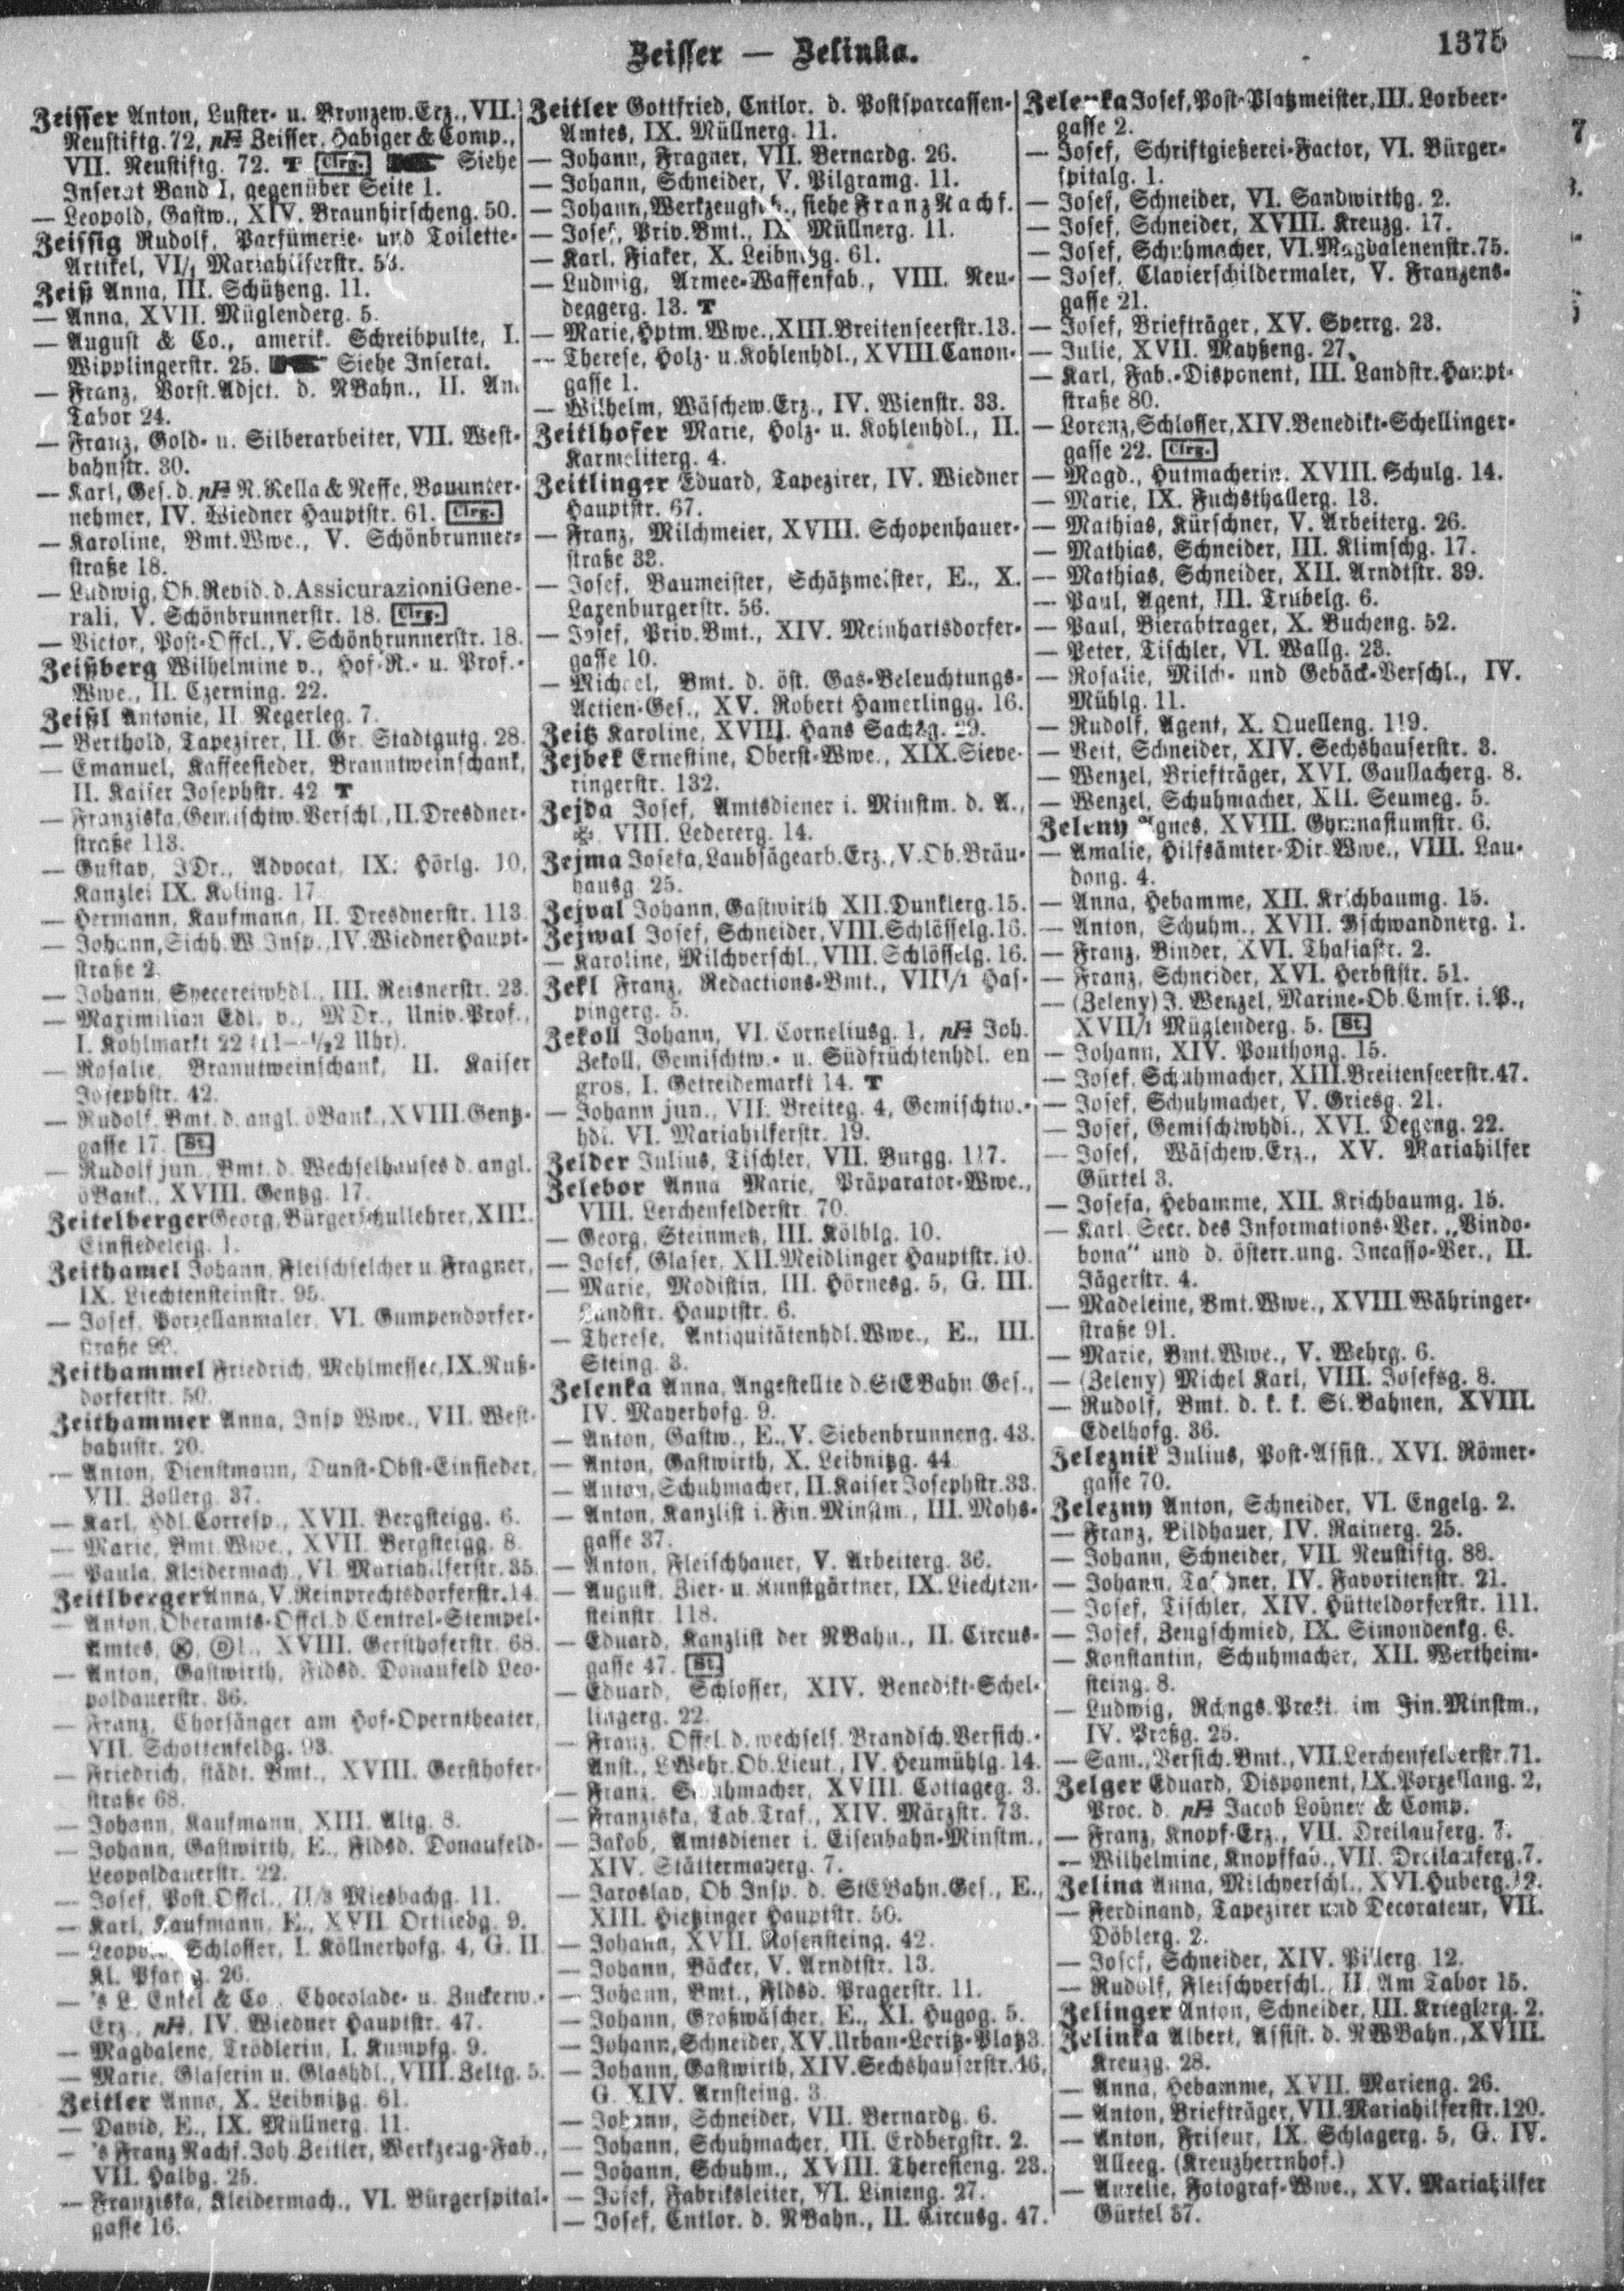 Zeisser — Zelinka.
1375
Zeisser Anton, Luster- u. Bronzew.Erz., VII.
Neustiftg. 72, pH Zeisser, Habiger & Comp.,
VII. Neustiftg. 72. T Clrg. Siehe
Inserat Band I, gegenüber Seite 1.
— Leopold, Gastw., XIV. Braunhirscheng. 50.
Zeissig Rudolf, Parfümerie- und Toilette-
Artikel, VI/1 Mariahilferstr. 53.
Zeiß Anna, III. Schützeng. 11.
— Anna, XVII. Müglenderg. 5.
— August & Co., amerik. Schreibpulte, I.
Wipplingerstr. 25. Siehe Inserat.
— Franz, Vorst.Adjct. d. NBahn., II. Am
Tabor 24.
— Franz, Gold- u. Silberarbeiter, VII. West-
bahnstr. 30.
— Karl, Ges. d. pH N. Rella & Neffe, Bauunter-
nehmer, IV. Wiedner Hauptstr. 61. Clrg.
— Karoline, Bmt.Wwe., V. Schönbrunner-
straße 18.
— Ludwig, Ob.Revid. d. Assicurazioni Gene-
rali, V. Schönbrunnerstr. 18. Clrg.
— Victor, Post-Offcl., V. Schönbrunnerstr. 18.
Zeißberg Wilhelmine v., Hof-R.- u. Prof.-
Wwe., II. Czerning. 22.
Zeißl Antonie, II. Negerleg. 7.
— Berthold, Tapezirer, II. Gr. Stadtgutg. 28.
— Emanuel, Kaffeesieder, Branntweinschank,
II. Kaiser Josephstr. 42 T
— Franziska, Gemischtw.Verschl., II. Dresdner-
straße 113.
— Gustav, JDr., Advocat, IX. Hörlg. 10,
Kanzlei IX. Koling. 17.
— Hermann, Kaufmann, II. Dresdnerstr. 113.
— Johann, Sichh.W.Insp., IV. Wiedner Haupt-
straße 2.
— Johann, Specereiwhdl., III. Reisnerstr. 23.
— Maximilian Edl. v., MDr., Univ.Prof.,
I. Kohlmarkt 22 (11—1/22 Uhr).
— Rosalie, Branntweinschank, II. Kaiser
Josephstr. 42.
— Rudolf, Bmt. d. angl. öBank., XVIII. Gentz-
gasse 17. St.
— Rudolf jun., Bmt. d. Wechselhauses d. angl.
öBank., XVIII. Gentzg. 17.
Zeitelberger Georg, Bürgerschullehrer, XIII.
Einsiedeleig. 1.
Zeithamel Johann, Fleischselcher u. Fragner,
IX. Liechtensteinstr. 95.
— Josef, Porzellanmaler, VI. Gumpendorfer-
straße 92.
Zeithammel Friedrich, Mehlmesser, IX. Nuß-
dorferstr. 50.
Zeithammer Anna, Insp.Wwe., VII. West-
bahnstr. 20.
— Anton, Dienstmann, Dunst-Obst-Einsieder,
VII. Zollerg. 37.
— Karl, Hdl.Corresp., XVII. Bergsteigg. 6.
— Marie, Bmt.Wwe., XVII. Bergsteigg. 8.
— Paula, Kleidermach., VI. Mariahilferstr. 35.
Zeitlberger Anna, V. Reinprechtsdorferstr. 14.
— Anton, Oberamts-Offcl. d. Central-Stempel-
Amtes, XVIII. Gersthoferstr. 68.
— Anton, Gastwirth, Fldsd. Donaufeld Leo-
poldauerstr. 36.
— Franz, Chorsänger am Hof-Operntheater,
VII. Schottenfeldg. 93.
— Friedrich, städt. Bmt., XVIII. Gersthofer-
straße 68.
— Johann, Kaufmann, XIII. Altg. 8.
— Johann, Gastwirth, E., Fldsd. Donaufeld-
Leopoldauerstr. 22.
— Josef, Post.Offcl., II/8 Miesbachg. 11.
— Karl, Kaufmann, E., XVII. Ortliebg. 9.
— Leopold, Schlosser, I. Köllnerhofg. 4, G. II.
Kl. Pfarrg. 26.
— 's L. Enkel & Co., Chocolade- u. Zuckerw.-
Erz., pH, IV. Wiedner Hauptstr. 47.
— Magdalene, Trödlerin, I. Kumpfg. 9.
— Marie, Glaserin u. Glashdl., VIII. Zeltg. 5.
Zeitler Anna, X. Leibnitzg. 61.
— David, E., IX. Müllnerg. 11.
— 's Franz Nachf. Joh. Zeitler, Werkzeug-Fab.,
VII. Halbg. 25.
— Franziska, Kleidermach., VI. Bürgerspital-
gasse 16.
Zeitler Gottfried, Cntlor. d. Postsparcassen-
Amtes, IX. Müllnerg. 11.
— Johann, Fragner, VII. Bernardg. 26.
— Johann, Schneider, V. Pilgramg. 11.
— Johann, Werkzeugfab., siehe Franz Nachf.
— Josef, Priv.Bmt., IX. Müllnerg. 11.
— Karl, Fiaker, X. Leibnitzg. 61.
— Ludwig, Armee-Waffenfab., VIII. Neu-
deggerg. 13. T
— Marie, Hptm.Wwe., XIII. Breitenseerstr. 13.
— Therese, Holz- u. Kohlenhdl., XVIII. Canon-
gasse 1.
— Wilhelm, Wäschew.Erz., IV. Wienstr. 33.
Zeitlhofer Marie, Holz- u. Kohlenhdl., II.
Karmeliterg. 4.
Zeitlinger Eduard, Tapezirer, IV. Wiedner
Hauptstr. 67.
— Franz, Milchmeier, XVIII. Schopenhauer-
straße 32.
— Josef, Baumeister, Schätzmeister, E., X.
Laxenburgerstr. 56.
— Josef, Priv.Bmt., XIV. Meinhartsdorfer-
gasse 10.
— Michael, Bmt. d. öst. Gas-Beleuchtungs-
Actien-Ges., XV. Robert Hamerlingg. 16.
Zeitz Karoline, XVIII. Hans Sachsg. 29.
Zejbek Ernestine, Oberst-Wwe., XIX. Sieve-
ringerstr. 132.
Zejda Josef, Amtsdiener i. Minstm. d. A.,
VIII. Ledererg. 14.
Zejma Josefa, Laubsägearb.Erz., V. Ob. Bräu-
hausg. 25.
Zejval Johann, Gastwirth XII. Dunklerg. 15.
Zejwal Josef, Schneider, VIII. Schlösselg. 16.
— Karoline, Milchverschl., VIII. Schlösselg. 16.
Zekl Franz, Redactions-Bmt., VIII/1 Has-
pingerg. 5.
Zekoll Johann, VI. Corneliusg. 1, pH Joh.
Zekoll, Gemischtw.- u. Südfrüchtenhdl. en
gros, I. Getreidemarkt 14. T
— Johann jun., VII. Breiteg. 4, Gemischtw.-
hdl. VI. Mariahilferstr. 19.
Zelder Julius, Tischler, VII. Burgg. 117.
Zelebor Anna Marie, Präparator-Wwe.,
VIII. Lerchenfelderstr. 70.
— Georg, Steinmetz, III. Kölblg. 10.
— Josef, Glaser, XII. Meidlinger Hauptstr. 10.
— Marie, Modistin, III. Hörnesg. 5, G. III.
Landstr. Hauptstr. 6.
— Therese, Antiquitätenhdl.Wwe., E., III.
Steing. 3.
Zelenka Anna, Angestellte d. StEBahn Ges.,
IV. Mayerhofg. 9.
— Anton, Gastw., E., V. Siebenbrunneng. 43.
— Anton, Gastwirth, X. Leibnitzg. 44.
— Anton, Schuhmacher, II. Kaiser Josephstr. 33.
— Anton, Kanzlist i. Fin.Minstm., III. Mohs-
gasse 37.
— Anton, Fleischhauer, V. Arbeiterg. 36.
— August, Zier- u. Kunstgärtner, IX. Liechten-
steinstr. 118.
— Eduard, Kanzlist der NBahn., II. Circus-
gasse 47. St.
— Eduard, Schlosser, XIV. Benedikt-Schel-
lingerg. 22.
— Franz, Offcl. d. wechsels. Brandsch.Versich.-
Anst., LWehr.Ob.Lieut., IV. Heumühlg. 14.
— Franz, Schuhmacher, XVIII. Cottageg. 3.
— Franziska, Tab.Traf., XIV. Märzstr. 73.
— Jakob, Amtsdiener i. Eisenbahn-Minstm.,
XIV. Stättermayerg. 7.
— Jaroslav, Ob.Insp. d. StEBahn.Ges., E.,
XIII. Hietzinger Hauptstr. 50.
— Johann, XVII. Rosensteing. 42.
— Johann, Bäcker, V. Arndtstr. 13.
— Johann, Bmt., Fldsd. Pragerstr. 11.
— Johann, Großwäscher, E., XI. Hugog. 5.
— Johann, Schneider, XV. Urban-Loritz-Platz 3.
— Johann, Gastwirth, XIV. Sechshauserstr. 46,
G. XIV. Arnsteing. 3.
— Johann, Schneider, VII. Bernardg. 6.
— Johann, Schuhmacher, III. Erdbergstr. 2.
— Johann, Schuhm., XVIII. Theresieng. 23.
— Josef, Fabriksleiter, VI. Linieng. 27.
— Josef, Cntlor. d. NBahn., II. Circusg. 47.
Zelenka Josef, Post-Platzmeister, III. Lorbeer-
gasse 2.
— Josef, Schriftgießerei-Factor, VI. Bürger-
spitalg. 1.
— Josef, Schneider, VI. Sandwirthg. 2.
— Josef, Schneider, XVIII. Kreuzg. 17.
— Josef, Schuhmacher, VI. Magdalenenstr. 75.
— Josef, Clavierschildermaler, V. Franzens-
gasse 21.
— Josef, Briefträger, XV. Sperrg. 23.
— Julie, XVII. Mayßeng. 27.
— Karl, Fab.-Disponent, III. Landstr. Haupt-
straße 80.
— Lorenz, Schlosser, XIV. Benedikt-Schellinger-
gasse 22. Clrg.
— Magd., Hutmacherin, XVIII. Schulg. 14.
— Marie, IX. Fuchsthallerg. 13.
— Mathias, Kürschner, V. Arbeiterg. 26.
— Mathias, Schneider, III. Klimschg. 17.
— Mathias, Schneider, XII. Arndtstr. 39.
— Paul, Agent, III. Trubelg. 6.
— Paul, Bierabtrager, X. Bucheng. 52.
— Peter, Tischler, VI. Wallg. 23.
— Rosalie, Milch- und Gebäck-Verschl., IV.
Mühlg. 11.
— Rudolf, Agent, X. Quelleng. 119.
— Veit, Schneider, XIV. Sechshauserstr. 3.
— Wenzel, Briefträger, XVI. Gaullacherg. 8.
— Wenzel, Schuhmacher, XII. Seumeg. 5.
Zeleny Agnes, XVIII. Gymnasiumstr. 6.
— Amalie, Hilfsämter-Dir.Wwe., VIII. Lau-
dong. 4.
— Anna, Hebamme, XII. Krichbaumg. 15.
— Anton, Schuhm., XVII. Gschwandnerg. 1.
— Franz, Binder, XVI. Thaliastr. 2.
— Franz, Schneider, XVI. Herbststr. 51.
— (Zeleny) J. Wenzel, Marine-Ob.Cmsr. i. P.,
XVII/1 Müglenderg. 5. St.
— Johann, XIV. Pouthong. 15.
— Josef, Schuhmacher, XIII. Breitenseerstr. 47.
— Josef, Schuhmacher, V. Griesg. 21.
— Josef, Gemischtwhdl., XVI. Degeng. 22.
— Josef, Wäschew.Erz., XV. Mariahilfer
Gürtel 3.
— Josefa, Hebamme, XII. Krichbaumg. 15.
— Karl, Secr. des Informations-Ver. „Vindo-
bona“ und d. österr.ung. Incasso-Ver., II.
Jägerstr. 4.
— Madeleine, Bmt.Wwe., XVIII. Währinger-
straße 91.
— Marie, Bmt.Wwe., V. Wehrg. 6.
— (Zeleny) Michel Karl, VIII. Josefsg. 8.
— Rudolf, Bmt. d. k. k. St.Bahnen, XVIII.
Edelhofg. 36.
Zeleznik Julius, Post-Assist., XVI. Römer-
gasse 70.
Zelezny Anton, Schneider, VI. Engelg. 2.
— Franz, Bildhauer, IV. Rainerg. 25.
— Johann, Schneider, VII. Neustiftg. 88.
— Johann, Taschner, IV. Favoritenstr. 21.
— Josef, Tischler, XIV. Hütteldorferstr. 111.
— Josef, Zeugschmied, IX. Simondenkg. 6.
— Konstantin, Schuhmacher, XII. Wertheim-
steing. 8.
— Ludwig, Rchngs.Prakt. im Fin.Minstm.,
IV. Preßg. 25.
— Sam., Versich.Bmt., VII. Lerchenfelderstr. 71.
Zelger Eduard, Disponent, IX. Porzellang. 2,
Proc. d. pH Jacob Lohner & Comp.
— Franz, Knopf-Erz., VII. Dreilauferg. 7.
— Wilhelmine, Knopffab., VII. Dreilauferg. 7.
Zelina Anna, Milchverschl., XVI. Huberg. 12.
— Ferdinand, Tapezirer und Decorateur, VII.
Döblerg. 2.
— Josef, Schneider, XIV. Pillerg. 12.
— Rudolf, Fleischverschl., II. Am Tabor 15.
Zelinger Anton, Schneider, III. Krieglerg. 2.
Zelinka Albert, Assist. d. NWBahn., XVIII.
Kreuzg. 28.
— Anna, Hebamme, XVII. Marieng. 26.
— Anton, Briefträger, VII. Mariahilferstr. 120.
— Anton, Friseur, IX. Schlagerg. 5, G. IV.
Alleeg. (Kreuzherrnhof.)
— Aurelie, Fotograf-Wwe., XV. Mariahilfer
Gürtel 37.